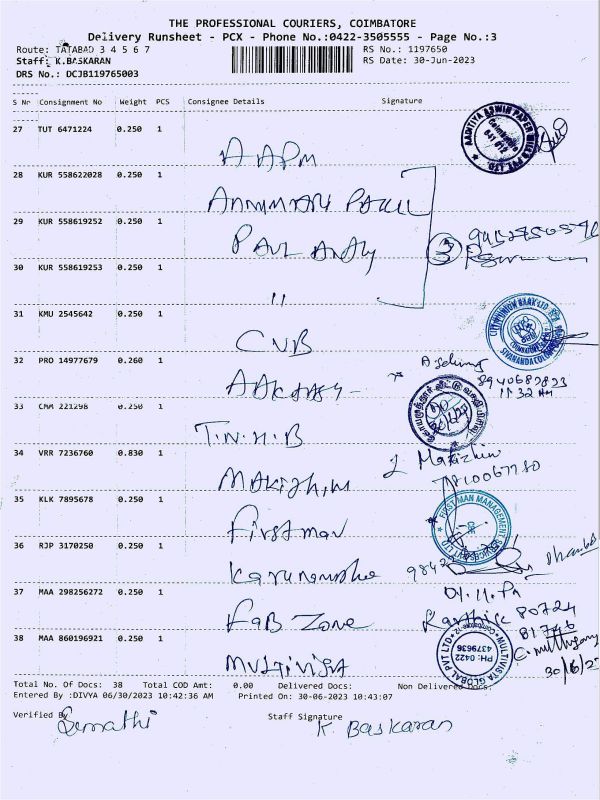 THE PROFESSIONAL COURIERS, COIMBATORE
Delivery Runsheet - PCX - Phone No.:0422-3505555 - Page No.:3
Route: TATABAD 3 4 5 6 7
RS No.: 1197650
Staff: K.BASKARAN
RS Date: 30-Jun-2023
DRS No.: DCJB119765003
S Nr Consignment No Weight PCS Consignee Details Signature
27 TUT 6471224 0.250 1
AADITYA ASWIN PAPER MILLS PVT. LTD.
Coimbatore
641 012
AAPM
28 KUR 558622028 0.250 1
29 KUR 558619252 0.250 1
3
30 KUR 558619253 0.250 1
"
31 KMU 2545642 0.250 1
CUB
CITY UNION BANK LTD
32 PRO 14977679 0.260 1
8940682823
11.32 AM
33 CMM 221298 0.250 1
T.N.H.B
34 VRR 7236760 0.830 1
Makizhin
MAKIZHIM
35 KLK 7895678 0.250 1
FIRST MAN MANAGEMENT SERVICES PVT LTD
First man
36 RJP 3170250 0.250 1
9842
37 MAA 298256272 0.250 1
FaB Zone
Karthic 80724
81746
38 MAA 860196921 0.250 1
MULTIVISTA GLOBAL PVT LTD
Coimbatore-12
PH: 0422
4379636
C. muthu
30/6/23
MULTIVISTA
Total No. Of Docs: 38 Total COD Amt: 0.00 Delivered Docs: Non Delivered Docs:
Entered By :DIVYA 06/30/2023 10:42:36 AM Printed On: 30-06-2023 10:43:07
Verified By
Staff Signature
K. Baskaran